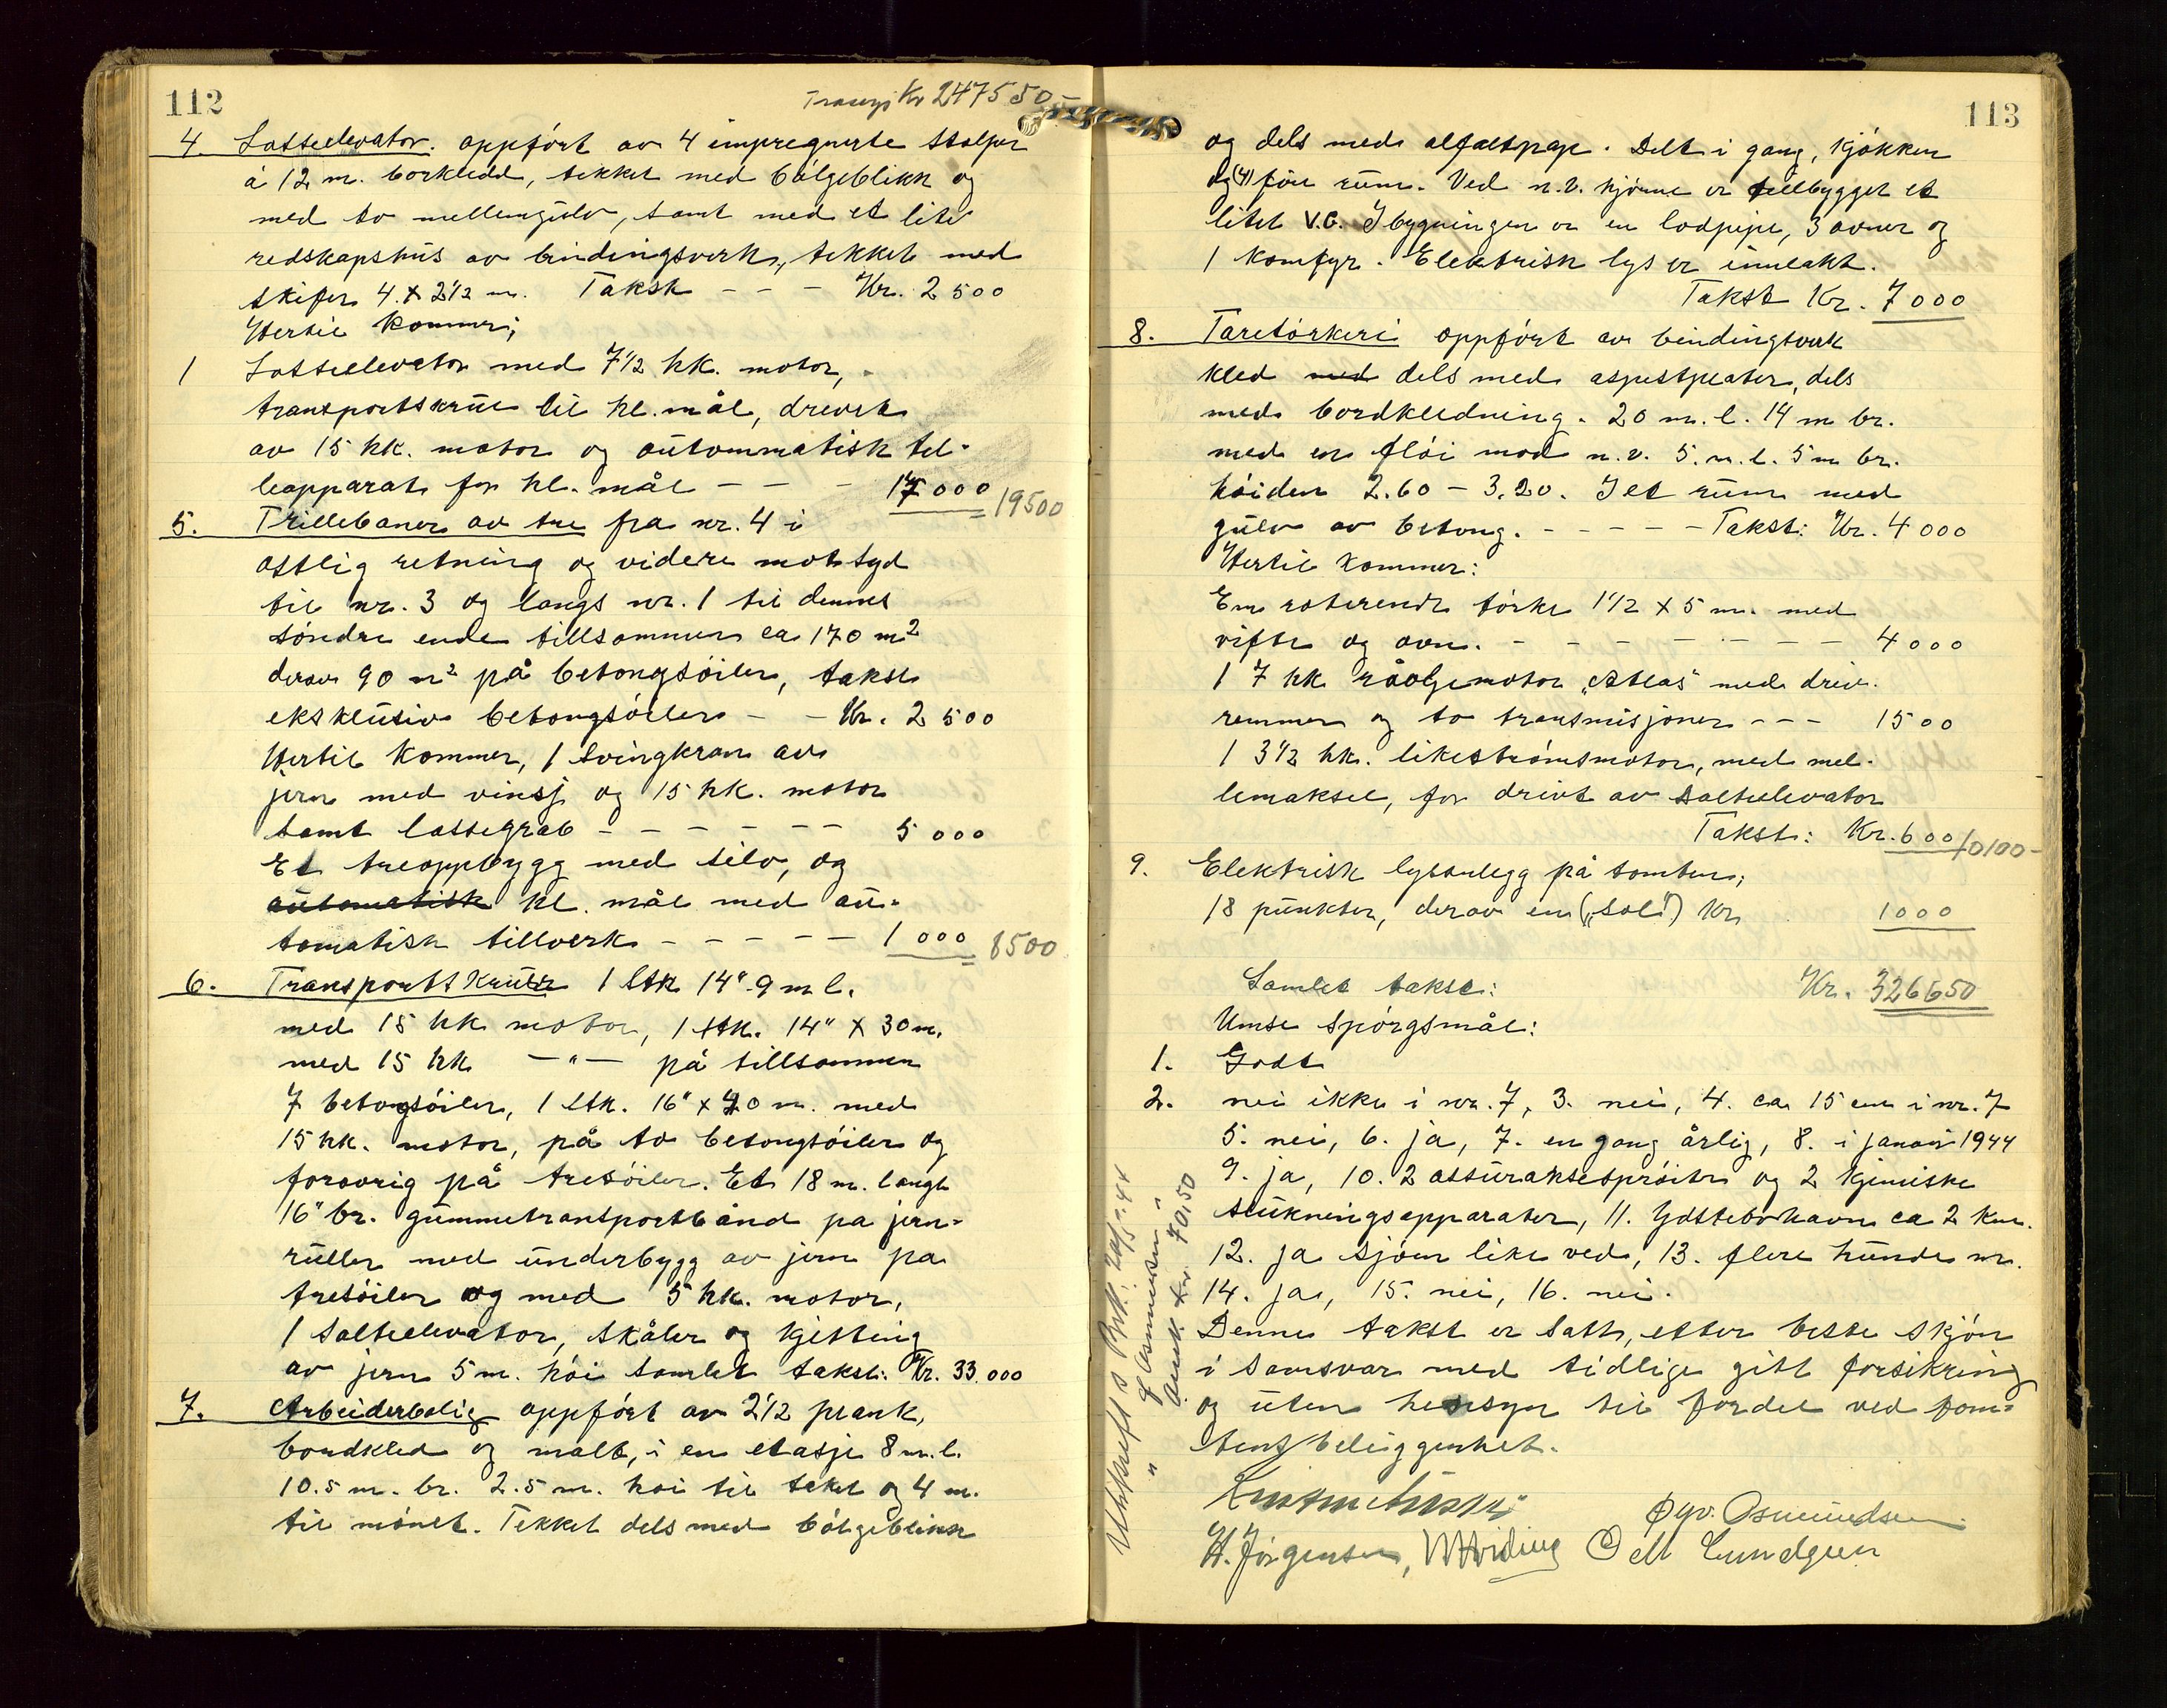 112
Transp. Kr 247550-
4. Lasteelevator. oppført av 4 impregnerte stolper
á 12 m. borkledd, tekket med bølgeblikk og
med to mellemgulv, samt med et lite
redskapshus av bindingsverk, tekket med
skifer 4. x 2 1/2 m. Takst - - - Kr. 2 500
Hertil kommer;
1 Lasteelevator med 7 1/2 hk. motor,
transportskrue til hl. mål, drevet
av 15 hk. motor og autommatisk tel-
leapparat for hl. mål - - - 17 000 19500
5. Trillebaner av tre fra nr. 4 i
østlig retning og videre mot syd
til nr. 3 og langs nr. 1 til dennes
søndre ende tilsammen ca 170 m2
derav 90 m2 på betongsøiler, takst
eksklusiv betongsøiler - - Kr. 2 500
Hertil kommer, 1 svingkran av
jern med vinsj og 15 hk. motor
samt lastegrab - - - - - - 5 000
Et treoppbygg med silo, og
automatisk hl. mål med au-
tomatisk tillverk - - - - - 1 000 8500
6. Transportskruer 1 stk 14" 9 m l.
med 15 hk motor, 1 stk. 14" x 30 m.
med 15 hk -"- på tillsammen
7 betongsøiler, 1 stk. 16" x 20 m. med
15 hk. motor, på to betongsøiler og
forøvrig på tresøiler. Et 18 m. langt
16" br. gummetransportbånd pa jern-
ruller med underbygg av jern pa
tresøiler og med 5 hk. motor,
1 salteelevator, skåler og kjetting
av jern 5 m. høi samlet takst: Kr. 33.000
7. Arbeiderbolig oppført av 2 1/2 plank,
bordkled og malt, i en etasje 8 m. l.
10.5 m. br. 2.5 m. høi til taket og 4 m.
til mønet. Tekket dels med bølgeblikk
113
og dels med asfaltpap. Delt i gang, kjøkken
og (4) fire rum. Ved n.v. hjørne er tillbygget et
litet V.C. I bygningen er en lodpipe, 3 ovner og
1 komfyr. Elektrisk lys er innlakt.
Takst Kr. 7000
8. Taretørkeri oppført av bindingsverk
kled med dels med aspestplater, dels
med bordkledning. 20 m. l. 14 m br.
med en fløi mod n.v. 5. m. l. 5 m br.
høiden 2.60 - 3.20. I et rum med
gulv av betong. - - - - - Takst: Kr. 4 000
Hertil kommer:
En roterende tørke 1 1/2 x 5 m. med
vifte og ovn. - - - - - - - 4 000
1 7 hk råoljemotor "Atlas" med driv-
remmer og to transmisjoner - - - 1500
1 3 1/2 hk. likestrømsmotor, med mel-
lemaksel, for drivt av salteelevator
Takst: Kr. 600 10100-
9. Elektrisk lysanlegg på tomten;
18 punkter, derav en ("Sol") Kr 1000
Samlet takst: Kr. 326650
Umse spørgsmål:
1. Godt
2. nei ikke i nr. 7, 3. nei, 4. ca 15 cm i nr. 7
5. nei, 6. ja, 7. en gang årlig, 8. i januar 1944
9. ja, 10. 2 assuransesprøiter og 2 kjemiske
slukningsapparater, 11. Ydstebøhavn ca 2 km.
12. ja sjøen like ved, 13. flere hundre m.
14. ja, 15. nei, 16. nei.
Denne takst er satt, etter beste skjøn
i samsvar med tidligere gitt forsikring
og uten hensyn til fordel ved tom-
tens beliggenhet.
Øyv. Osmundsen
H. Jørgensen, Odd Lundgren
Utskrift s Brk. 20/5-44
" Osmundsen "
Kr. 70.50